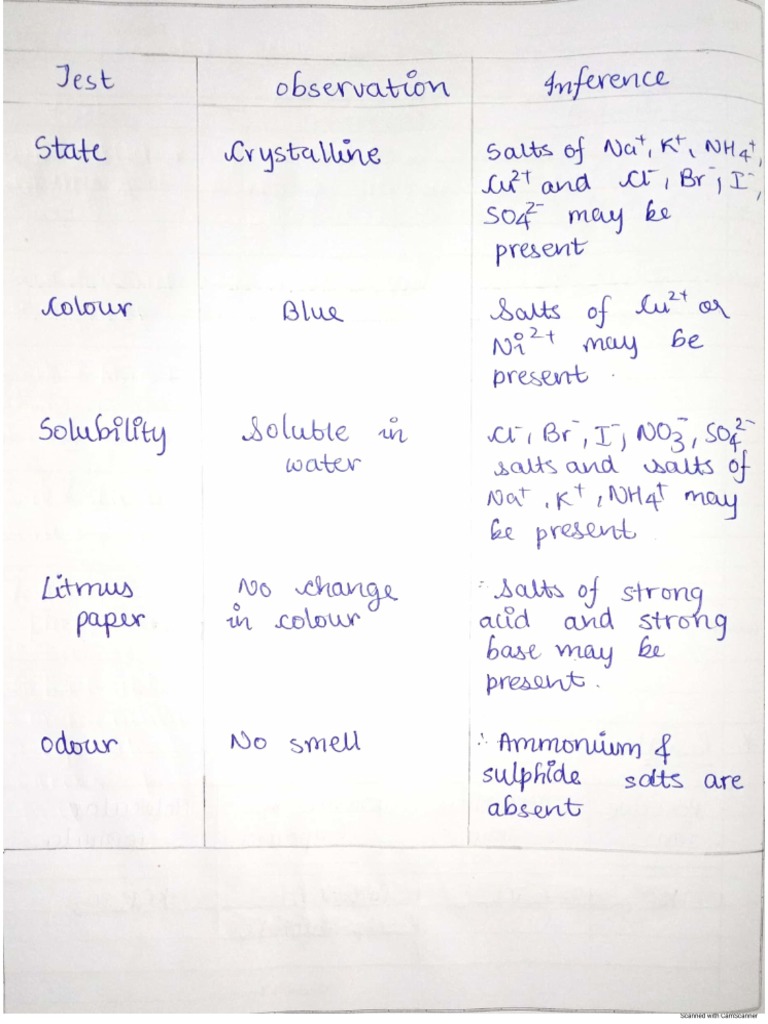 Test observation Inference
State Crystalline Salts of Na⁺, K⁺, NH4⁺,
Cu²⁺ and Cl⁻, Br⁻, I⁻,
SO4²⁻ may be
present
Colour Blue Salts of Cu²⁺ or
Ni²⁺ may be
present.
Solubility Soluble in Cl⁻, Br⁻, I⁻, NO3⁻, SO4²⁻
water salts and salts of
Na⁺, K⁺, NH4⁺ may
be present.
Litmus No change ∴ Salts of strong
paper in colour acid and strong
base may be
present.
odour No smell ∴ Ammonium &
sulphide salts are
absent
Scanned with CamScanner